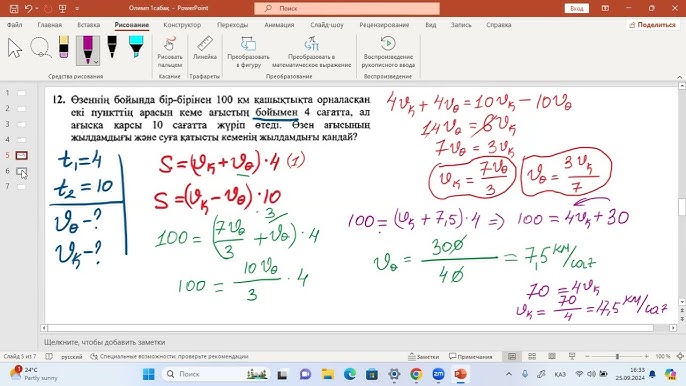 Олимп 1сабақ - PowerPoint
Поиск
Вход
Файл
Главная
Вставка
Рисование
Конструктор
Переходы
Анимация
Слайд-шоу
Рецензирование
Вид
Справка
Поделиться
Рисовать пальцем
Трафареты
Линейка
Преобразовать в фигуру
Преобразовать в математическое выражение
Воспроизведение рукописного ввода
Средства рисования
Касание
Трафареты
Преобразовать
Воспроизведение
1
2
3
4
5
6
7
12. Өзеннің бойында бір-бірінен 100 км қашықтықта орналасқан
екі пункттің арасын кеме ағыстың бойымен 4 сағатта, ал
ағысқа қарсы 10 сағатта жүріп өтеді. Өзен ағысының
жылдамдығы және суға қатысты кеменің жылдамдығы қандай?
t₁=4
t₂=10
ϑө-?
ϑқ-?
S=(ϑқ+ϑө)·4 (1)
S=(ϑқ-ϑө)·10
100=(7ϑө/3+ϑө)·4
3
100=10ϑө/3·4
4ϑқ+4ϑө=10ϑқ-10ϑө
14ϑө=6ϑқ
ϑқ=7ϑө/3
ϑө=3ϑқ/7
100=(ϑқ+7,5)·4=> 100=4ϑқ+30
ϑө=300/40=7,5 км/сағ
70=4ϑқ
ϑқ=70/4=17,5 км/сағ
Щелкните, чтобы добавить заметки
Слайд 5 из 7
русский
Специальные возможности: проверьте рекомендации
Заметки
100 %
24°C
Partly sunny
Поиск
ҚАЗ
16:33
25.09.2024